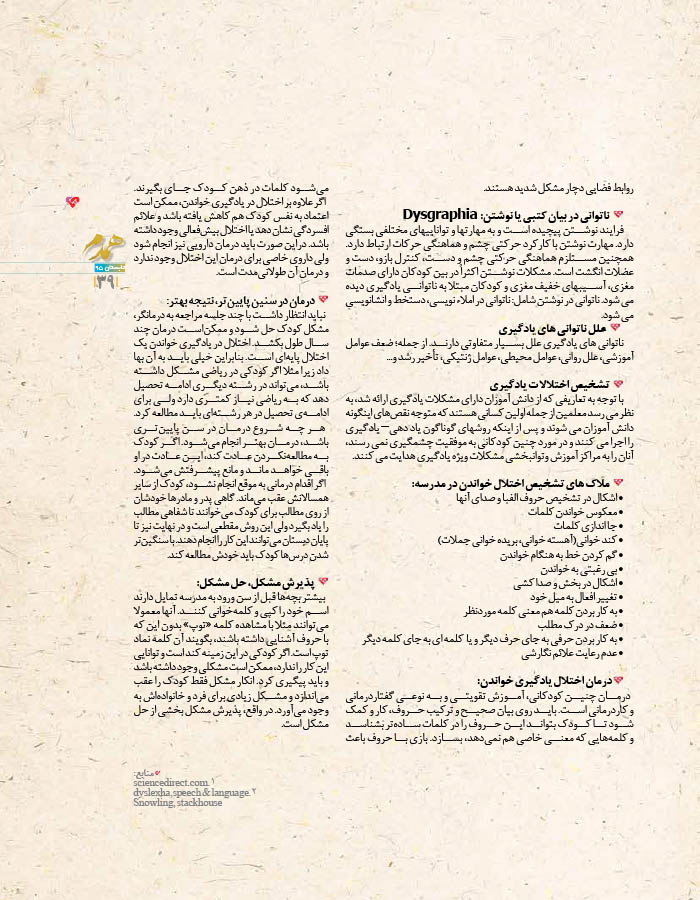 روابط فضایی دچار مشکل شدید هستند.
ناتوانی در بیان کتبی یا نوشتن: Dysgraphia
فرایند نوشتن پیچیده است و به مهارتها و تواناییهای مختلفی بستگی
دارد. مهارت نوشتن با کارکرد حرکتی چشم و هماهنگی حرکات ارتباط دارد.
همچنین مستلزم هماهنگی حرکتی چشم و دست، کنترل بازو، دست و
عضلات انگشت است. مشکلات نوشتن اکثراً در بین کودکان دارای صدمات
مغزی، آسیبهای خفیف مغزی و کودکان مبتلا به ناتوانایی یادگیری دیده
می شود. ناتوانی در نوشتن شامل: ناتوانی در املاء نویسی، دستخط و انشانویسی
می شود.
علل ناتوانی های یادگیری
ناتوانی های یادگیری علل بسیار متفاوتی دارند. از جمله؛ ضعف عوامل
آموزشی، علل روانی، عوامل محیطی، عوامل ژنتیکی، تأخیر رشد و...
تشخیص اختلالات یادگیری
با توجه به تعاریفی که از دانش آموزان دارای مشکلات یادگیری ارائه شد، به
نظر می رسد معلمین از جمله اولین کسانی هستند که متوجه نقص‌های اینگونه
دانش آموزان می شوند و پس از اینکه روشهای گوناگون یاددهی–یادگیری
را اجرا می کنند و در مورد چنین کودکانی به موفقیت چشمگیری نمی رسند،
آنان را به مراکز آموزش و توانبخشی مشکلات ویژه یادگیری هدایت می کنند.
ملاک های تشخیص اختلال خواندن در مدرسه:
• اشکال در تشخیص حروف الفبا و صدای آنها
• معکوس خواندن کلمات
• جااندازی کلمات
• کند خوانی(آهسته خوانی، بریده خوانی جملات)
• گم کردن خط به هنگام خواندن
• بی رغبتی به خواندن
• اشکال در بخش و صدا کشی
• تغییر افعال به میل خود
• به کار بردن کلمه هم معنی کلمه موردنظر
• ضعف در درک مطلب
• به کار بردن حرفی به جای حرف دیگر و یا کلمه ای به جای کلمه دیگر
• عدم رعایت علائم نگارشی
درمان اختلال یادگیری خواندن:
درمان چنین کودکانی، آموزش تقویتی و به نوعی گفتاردرمانی
و کاردرمانی است. باید روی بیان صحیح و ترکیب حروف، کار و کمک
شود تا کودک بتواند این حروف را در کلمات ساده‌تر بشناسد
و کلمه‌هایی که معنی خاصی هم نمی‌دهد، بسازد. بازی با حروف باعث
می‌شود کلمات در ذهن کودک جای بگیرند.
اگر علاوه بر اختلال در یادگیری خواندن، ممکن است
اعتماد به نفس کودک هم کاهش یافته باشد و علائم
افسردگی نشان دهد یا اختلال بیش‌فعالی وجود داشته
باشد. در این صورت باید درمان دارویی نیز انجام شود
ولی داروی خاصی برای درمان این اختلال وجود ندارد
و درمان آن طولانی‌مدت است.
درمان در سنین پایین‌تر، نتیجه بهتر:
نباید انتظار داشت با چند جلسه مراجعه به درمانگر،
مشکل کودک حل شود و ممکن است درمان چند
سال طول بکشد. اختلال در یادگیری خواندن یک
اختلال پایه‌ای است. بنابراین خیلی باید به آن بها
داد زیرا مثلا اگر کودکی در ریاضی مشکل داشته
باشد، می‌تواند در رشته دیگری ادامه تحصیل
دهد که به ریاضی نیاز کمتری دارد ولی برای
ادامه‌ی تحصیل در هر رشته‌ای باید مطالعه کرد.
هر چه شروع درمان در سن پایین‌تری
باشد، درمان بهتر انجام می‌شود. اگر کودک
به مطالعه‌نکردن عادت کند، این عادت در او
باقی خواهد ماند و مانع پیشرفتش می‌شود.
اگر اقدام درمانی به موقع انجام نشود، کودک از سایر
همسالانش عقب می‌ماند. گاهی پدر و مادرها خودشان
از روی مطالب برای کودک می‌خوانند تا شفاهی مطالب
را یاد بگیرد ولی این روش مقطعی است و در نهایت نیز تا
پایان دبستان می‌توانند این کار را انجام دهند. با سنگین‌تر
شدن درس‌ها کودک باید خودش مطالعه کند.
پذیرش مشکل، حل مشکل:
بیشتر بچه‌ها قبل از سن ورود به مدرسه تمایل دارند
اسم خود را کپی و کلمه‌خوانی کنند. آنها معمولا
می‌توانند مثلا با مشاهده کلمه «توپ» بدون این که
با حروف آشنایی داشته باشند، بگویند آن کلمه نماد
توپ است. اگر کودکی در این زمینه کند است و توانایی
این کار را ندارد، ممکن است مشکلی وجود داشته باشد
و باید پیگیری کرد. انکار مشکل فقط کودک را عقب
می‌اندازد و مشکل زیادی برای فرد و خانواده‌اش به
وجود می‌آورد. در واقع، پذیرش مشکل بخشی از حل
مشکل است.
منابع:
۱ sciencedirect.com.
۲ dyslexha,speech & language.
Snowling, stackhouse
همدم
تابستان ۹۵
۳۹